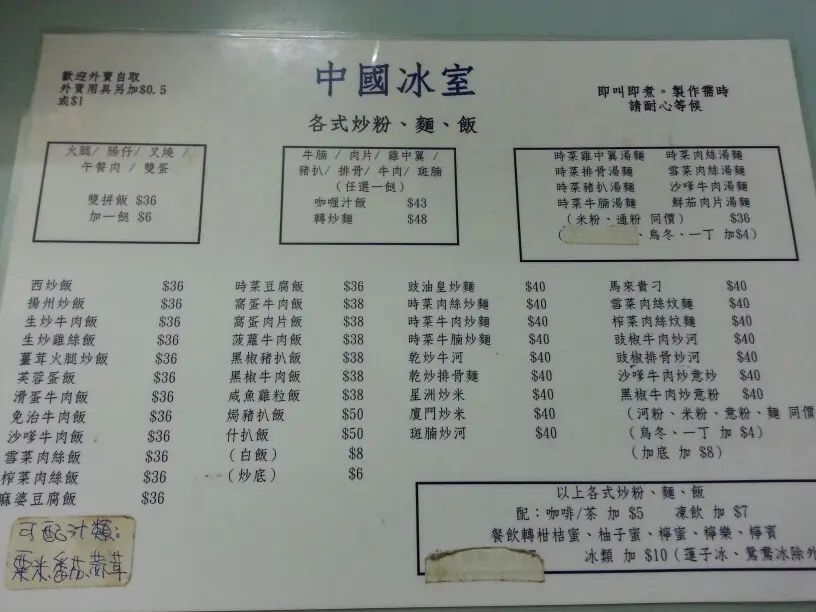 歡迎外賣自取
外賣用具另加$0.5
或$1
中國冰室
各式炒粉、麵、飯
即叫即煮。製作需時
請耐心等候
火腿/ 腸仔/ 叉燒 /
午餐肉 / 雙蛋
雙拼飯 $36
加一餸 $6
牛腩 / 肉片/ 雞中翼 /
豬扒/ 排骨/ 牛肉/ 斑腩
(任選一餸)
咖喱汁飯 $43
轉炒麵 $48
時菜雞中翼湯麵 時菜肉絲湯麵
時菜排骨湯麵 雪菜肉絲湯麵
時菜豬扒湯麵 沙嗲牛肉湯麵
時菜牛腩湯麵 鮮茄肉片湯麵
(米粉、通粉 同價) $36
( 、烏冬、一丁 加$4)
西炒飯 $36
揚州炒飯 $36
生炒牛肉飯 $36
生炒雞絲飯 $36
薑茸火腿炒飯 $36
芙蓉蛋飯 $36
滑蛋牛肉飯 $36
免治牛肉飯 $36
沙嗲牛肉飯 $36
雪菜肉絲飯 $36
榨菜肉絲飯 $36
麻婆豆腐飯 $36
時菜豆腐飯 $36
窩蛋牛肉飯 $38
窩蛋肉片飯 $38
菠蘿牛肉飯 $38
黑椒豬扒飯 $38
黑椒牛肉飯 $38
咸魚雞粒飯 $38
焗豬扒飯 $50
什扒飯 $50
(白飯) $8
(炒底) $6
豉油皇炒麵 $40
時菜肉絲炒麵 $40
時菜牛肉炒麵 $40
時菜牛腩炒麵 $40
乾炒牛河 $40
乾炒排骨麵 $40
星洲炒米 $40
廈門炒米 $40
斑腩炒河 $40
馬來貴刁 $40
雪菜肉絲炆麵 $40
榨菜肉絲炆麵 $40
豉椒牛肉炒河 $40
豉椒排骨炒河 $40
沙嗲牛肉炒意炒 $40
黑椒牛肉炒意粉 $40
(河粉、米粉、意粉、麵 同價
(烏冬、一丁 加 $4)
(加底 加 $8)
以上各式炒粉、麵、飯
配：咖啡/茶 加 $5 凍飲 加 $7
餐飲轉柑桔蜜、柚子蜜、檸蜜、檸樂、檸賓
冰類 加 $10 (蓮子冰、鴛鴦冰除外
可配汁類：
粟米.番茄.蒜茸